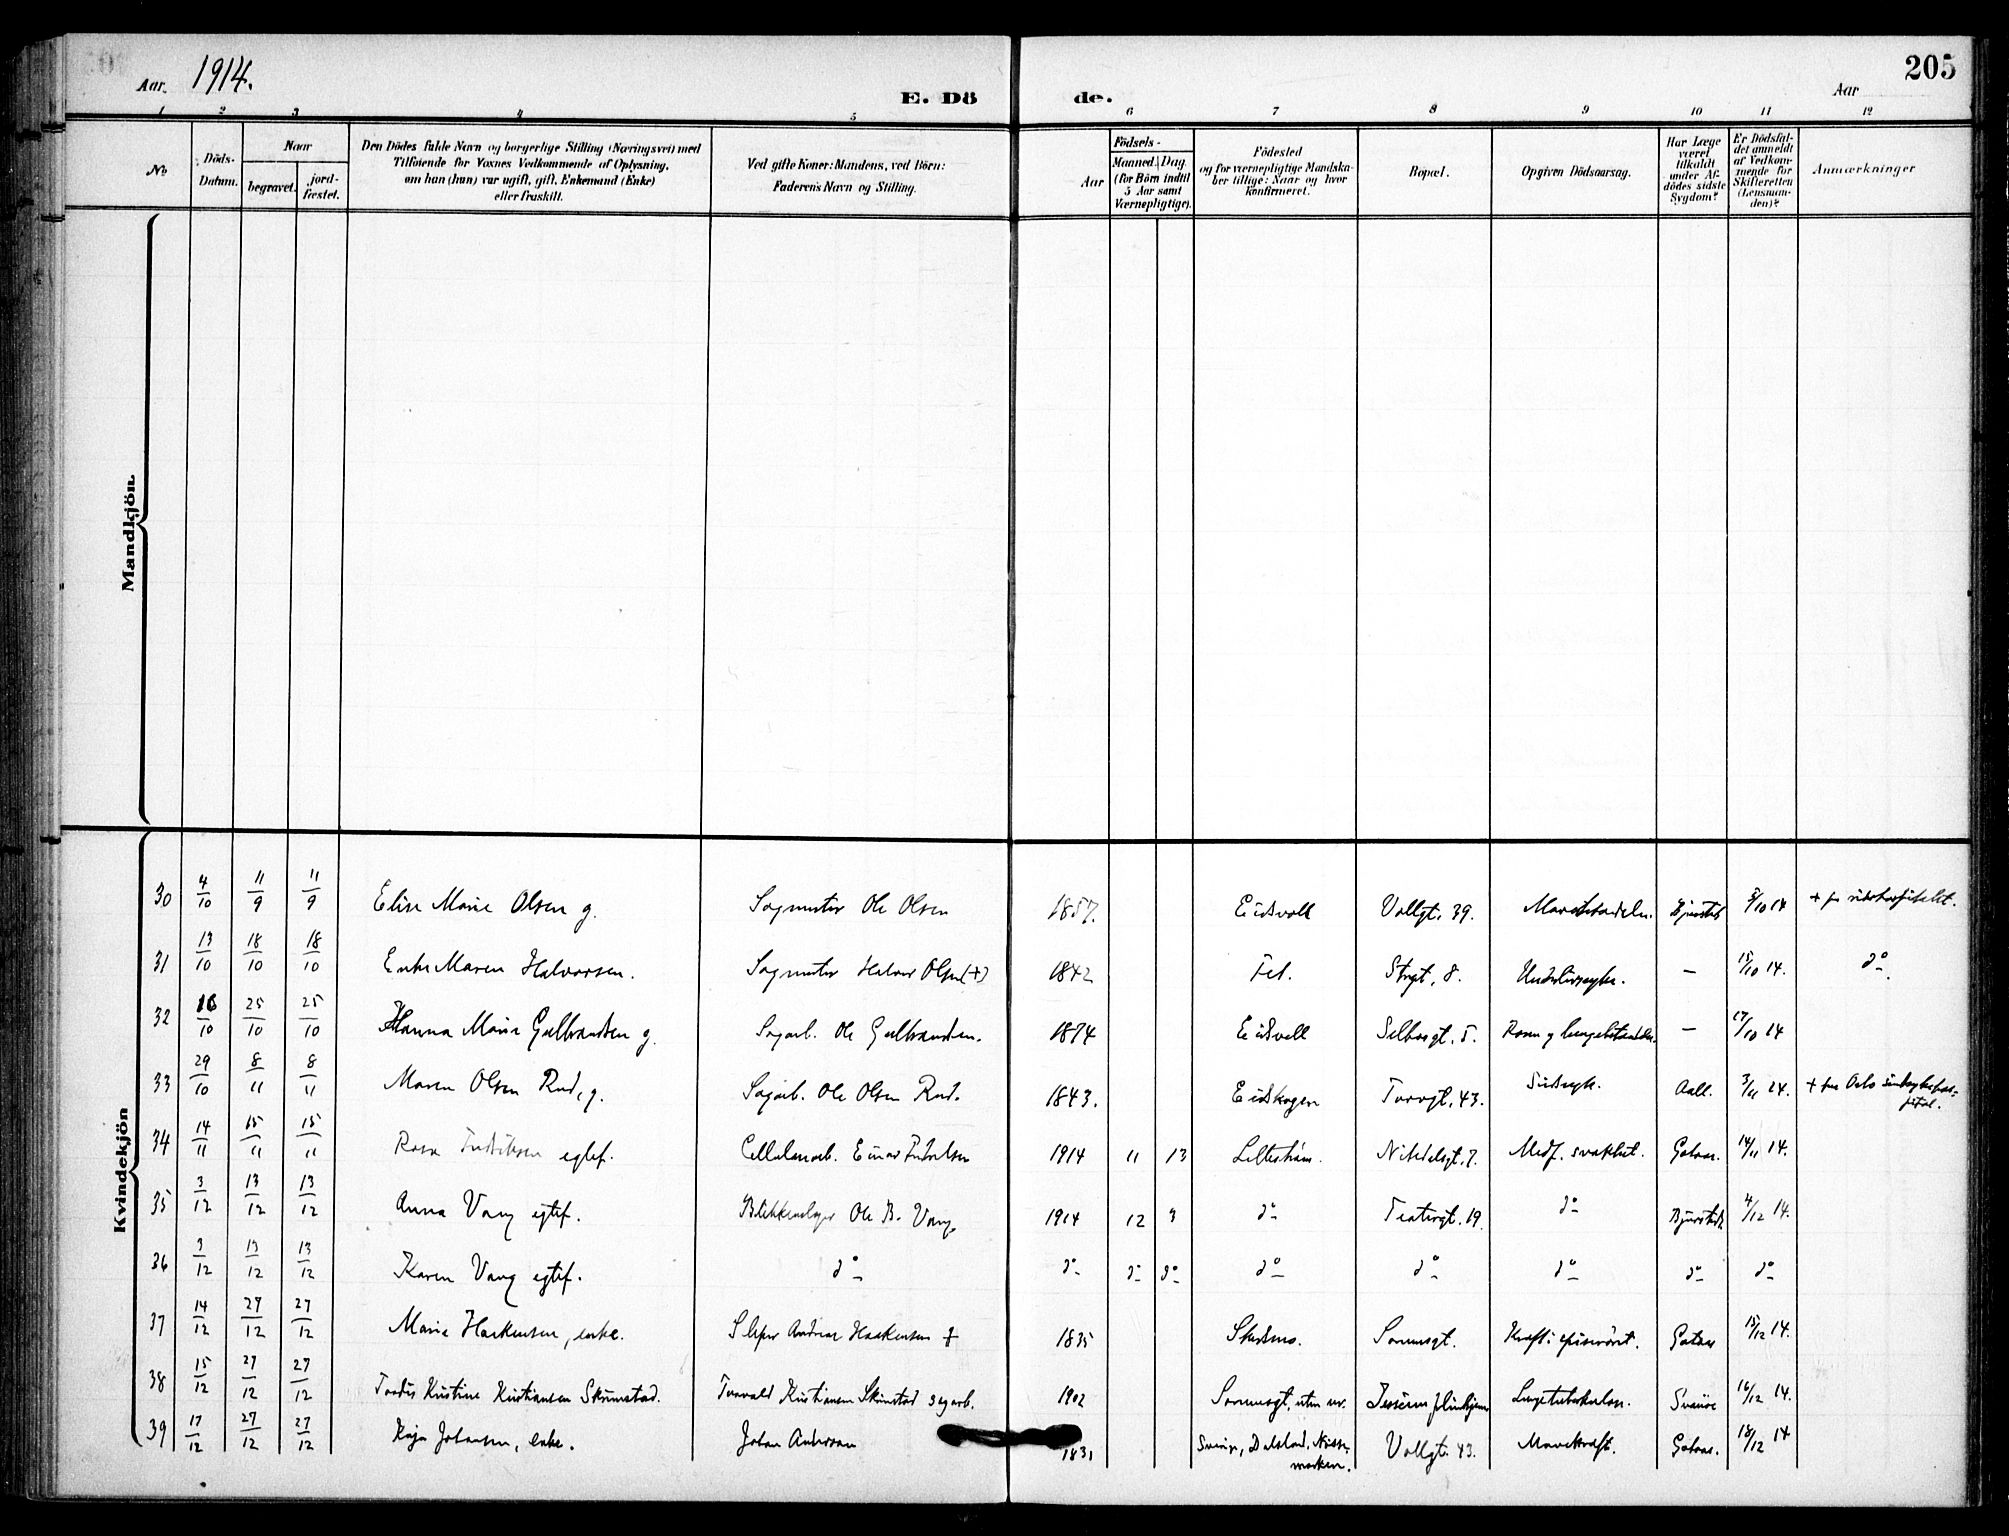 Aar. 1914.
E. Dö de.
Aar
205
1 2 3 4 5 6 7 8 9 10 11 12
No
Döds-Datum.
Naar
begravet.
jord-fæstet.
Den Dödes fulde Navn og borgerlige Stilling (Næringsvei) med
Tilföiende for Voxnes Vedkommende af Oplysning,
om han (hun) var ugift, gift, Enkemand (Enke)
eller fraskilt.
Ved gifte Koner: Mandens, ved Börn:
Faderens Navn og Stilling.
Födsels-
Aar
Maaned. Dag.
(for Börn indtil
5 Aar samt
Værnepligtige).
Födested
og for værnepligtige Mandska-
ber tillige: Naar og hvor
konfirmeret.
Bopæl.
Opgiven Dödsaarsag.
Har Læge
været
tilkaldt
under Af-
dödes sidste
Sygdom?
Er Dödsfal-
det anmeldt
af Vedkom-
mende for
Skifteretten
(Lensman-
den)?
Anmærkninger
Mandkjön.
Kvindekjön
30 4/10 11/9 11/9 Elise Marie Olsen g. Sagmester Ole Olsen 1857. Eidsvoll Vollgt. 39. Bjørstad 5/10 14
31 13/10 18/10 18/10 Enke Maren Halvorsen. Sagmester Halvor Olsen (+) 1842 Fet. Strgt. 8. Underlivssyke. — 15/10 14. do
32 16/10 25/10 25/10 Hanna Marie Gulbrandsen g. Sagarb. Ole Gulbrandsen. 1874 Eidsvoll Solbergt. 5. — 17/10 14
33 29/10 8/11 8/11 Maren Olsen Rud, g. Sagarb. Ole Olsen Rud. 1843. Eidskogen Torvgt. 43. Sindssyk. Aall. 3/11 24. + paa Oslo sindsykehos-
pital.
34 14/11 15/11 15/11 Rosa Fredriksen egtef. Cellulosearb. Einar Fredriksen 1914 11 13 Lillestrøm. Nitedalsgt. 7. Medf. svakhet. Gotaas. 14/11 14.
35 3/12 13/12 13/12 Anna Vang egtef. Blikkenslager Ole B. Vang. 1914 12 3 do Teatergt. 19. do Bjørstad 4/12 14.
36 3/12 13/12 13/12 Karen Vang egtef. do do do do do do do do do
37 14/12 27/12 27/12 Marie Haakensen, enke. Sliper Andreas Haakensen + 1835 Skedsmo. Sorumsgt. Kræft i spiserøret. Gotaas 15/12 14.
38 15/12 27/12 27/12 Tordis Kristine Kristiansen Skimstad. Torvald Kristiansen Skimstad sagarb. 1902 Sorumsgt. Lungetuberkulose. 16/12 14.
39 17/12 27/12 27/12 Kaja Johansen, enke. Johan Anderson 1831 Sverige, Dalsland, Nøsse-
marken. Vollgt. 43. Mavekræft. Gotaas. 18/12 14